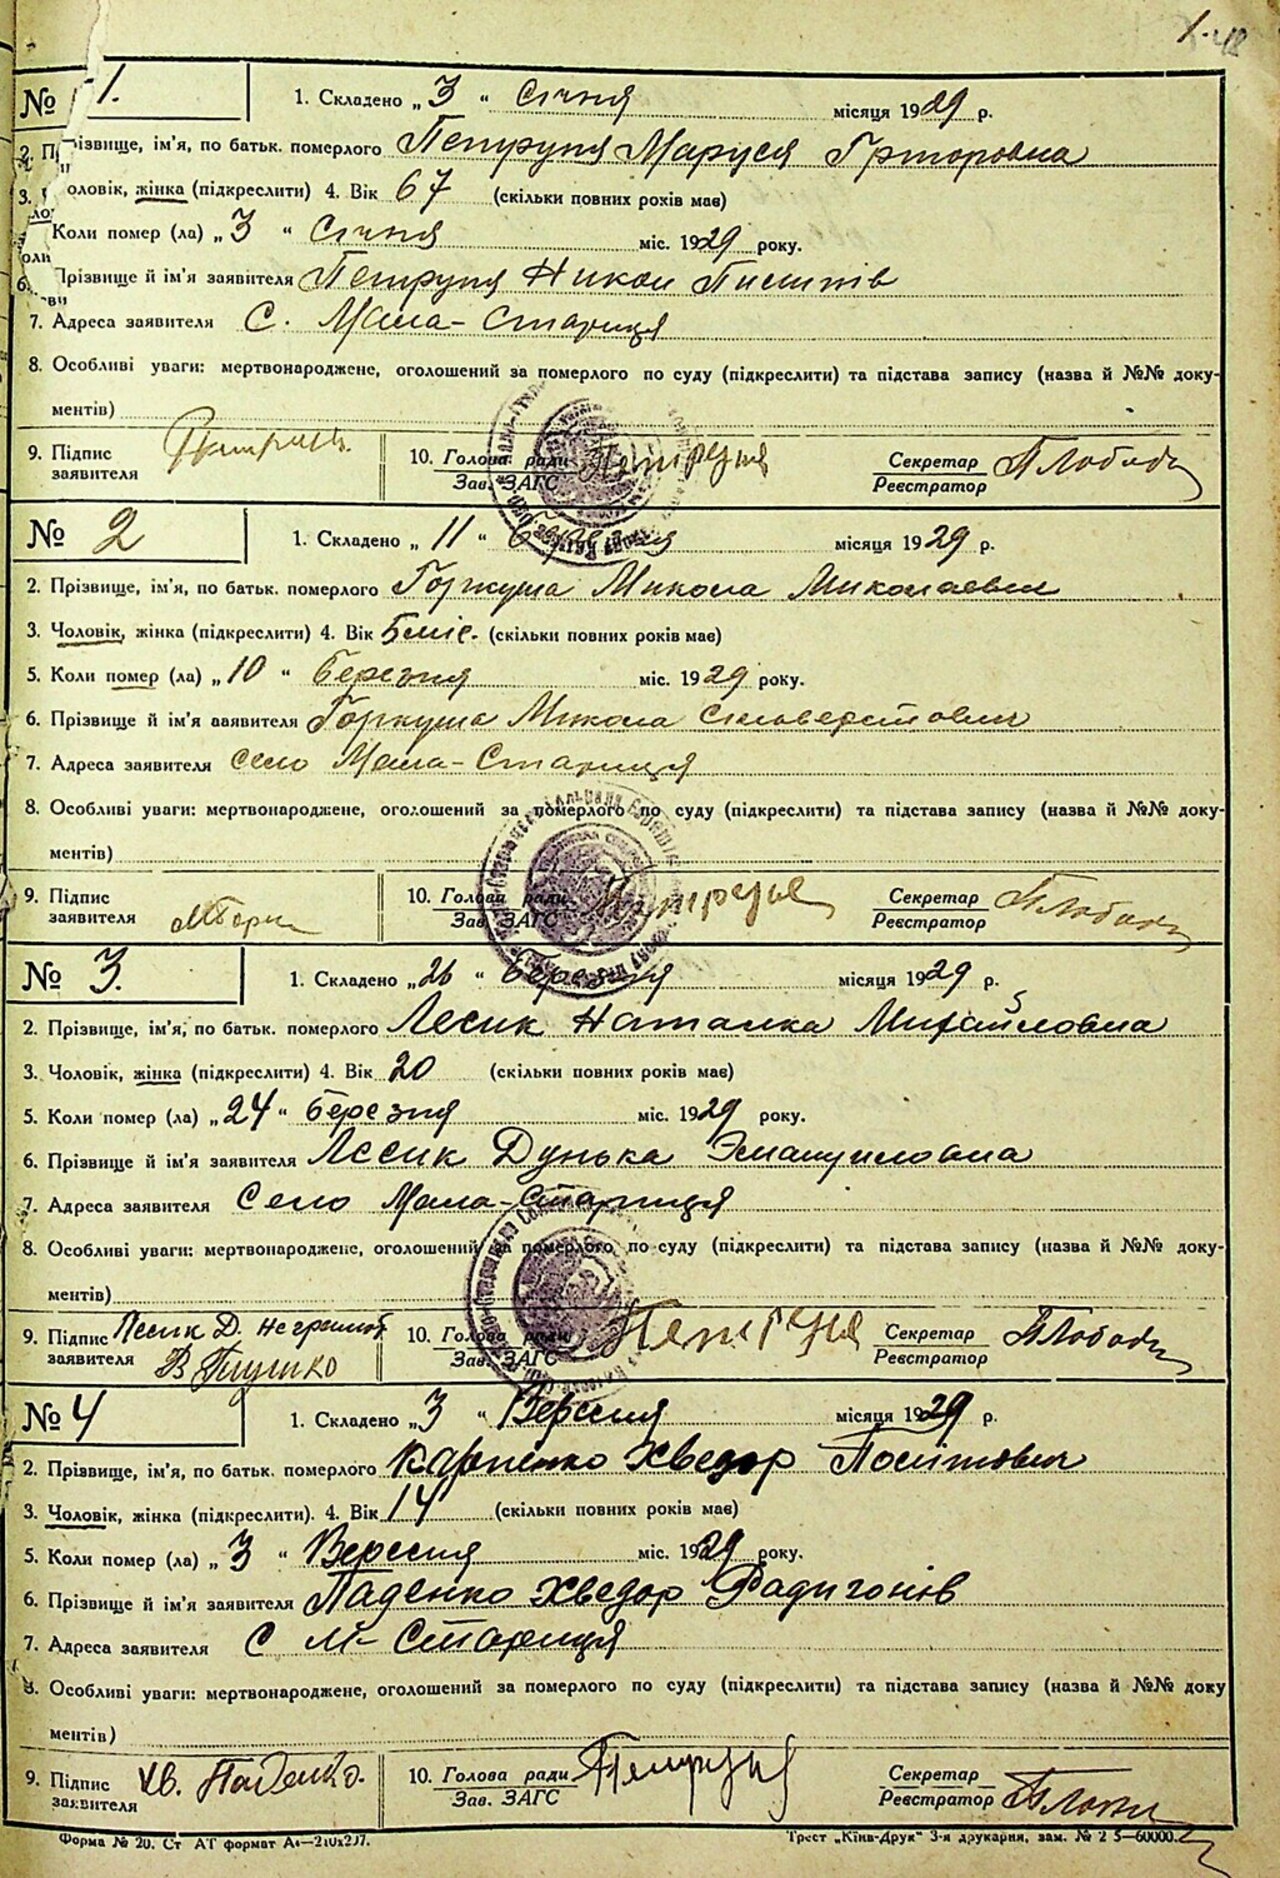 1.
№ 1. 1. Складено „3“ Січня місяця 1929 р.
2. Прізвище, ім'я, по батьк. померлого Петруня Маруся Григоровна
3. Чоловік, жінка (підкреслити) 4. Вік 67 (скільки повних рохів має)
Коли помер (ла) „3“ Січня міс. 1929 року.
6. Прізвище й ім'я заявителя Петруня Никон
7. Адреса заявителя С. Мала-Стариця
8. Особливі уваги: мертвонароджене, оголошений за померлого по суду (підкреслити) та підстава запису (назва й №№ доку-
ментів)
9. Підпис заявителя 10. Голова ради Петруня Секретар ПЛобода
Зав. ЗАГС Реєстратор
№ 2 1. Складено „11“ Березня місяця 1929 р.
2. Прізвище, ім'я, по батьк. померлого Горкуша Микола Миколаевич
3. Чоловік, жінка (підкреслити) 4. Вік 5 міс. (скільки повних років має)
5. Коли помер (ла) „10“ Березня міс. 1929 року.
6. Прізвище й ім'я заявителя Горкуша Микола Сильверстович
7. Адреса заявителя село Мала-Стариця
8. Особливі уваги: мертвонароджене, оголошений за померлого по суду (підкреслити) та підстава запису (назва й №№ доку-
ментів)
9. Підпис заявителя 10. Голова ради Петруня Секретар ПЛобода
Зав. ЗАГС Реєстратор
№ 3. 1. Складено „26“ Березня місяця 1929 р.
2. Прізвище, ім'я, по батьк. померлого Лесик Наталка Михайловна
3. Чоловік, жінка (підкреслити) 4. Вік 20 (скільки повних років має)
5. Коли помер (ла) „24“ Березня міс. 1929 року.
6. Прізвище й ім'я заявителя Лесик Дунька Эмануиловна
7. Адреса заявителя Село Мала-Стариця
8. Особливі уваги: мертвонароджене, оголошений за померлого по суду (підкреслити) та підстава запису (назва й №№ доку-
ментів)
9. Підпис Лесик Д. неграмот 10. Голова ради Петруня Секретар ПЛобода
заявителя В Глушко Зав. ЗАГС Реєстратор
№ 4 1. Складено „3“ Версня місяця 1929 р.
2. Прізвище, ім'я, по батьк. померлого Карпенко Хведор
3. Чоловік, жінка (підкреслити). 4. Вік 14 (скільки повних років має)
5. Коли помер (ла) „3“ Версня міс. 1929 року.
6. Прізвище й ім'я заявителя Паденко Хведор
7. Адреса заявителя С М-Стариця
8. Особливі уваги: мертвонароджене, оголошений за померлого по суду (підкреслити) та підстава запису (назва й №№ доку
ментів)
9. Підпис заявителя Хв. Паденко. 10. Голова ради Петруня Секретар
Зав. ЗАГС Реєстратор
Форма № 20. Ст АТ формат А4—210x297. Трест „Київ-Друк“ 3-я друкарня, зам. № 2 5—60000.